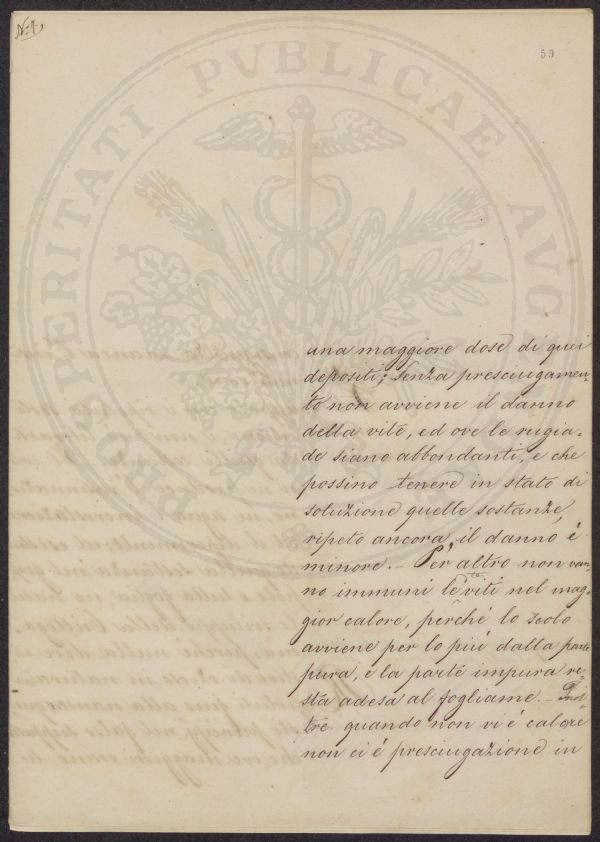 N. 4.
59
PROSPERITATI PVBLICAE AVG
una maggiore dose di quei
depositi; senza presciugamen-
to non avviene il danno
della vite, ed ove le rugia-
de siano abbondanti, e che
possino tenere in stato di
soluzione quelle sostanze,
ripeto ancora, il danno é
minore. – Per altro non van-
no immuni le viti nel mag-
gior calore, perché lo scolo
avviene per lo piú dalla parte
pura, e la parte impura re-
sta adesa al fogliame. –
tre quando non vi é calore
non ci é presciugazione in